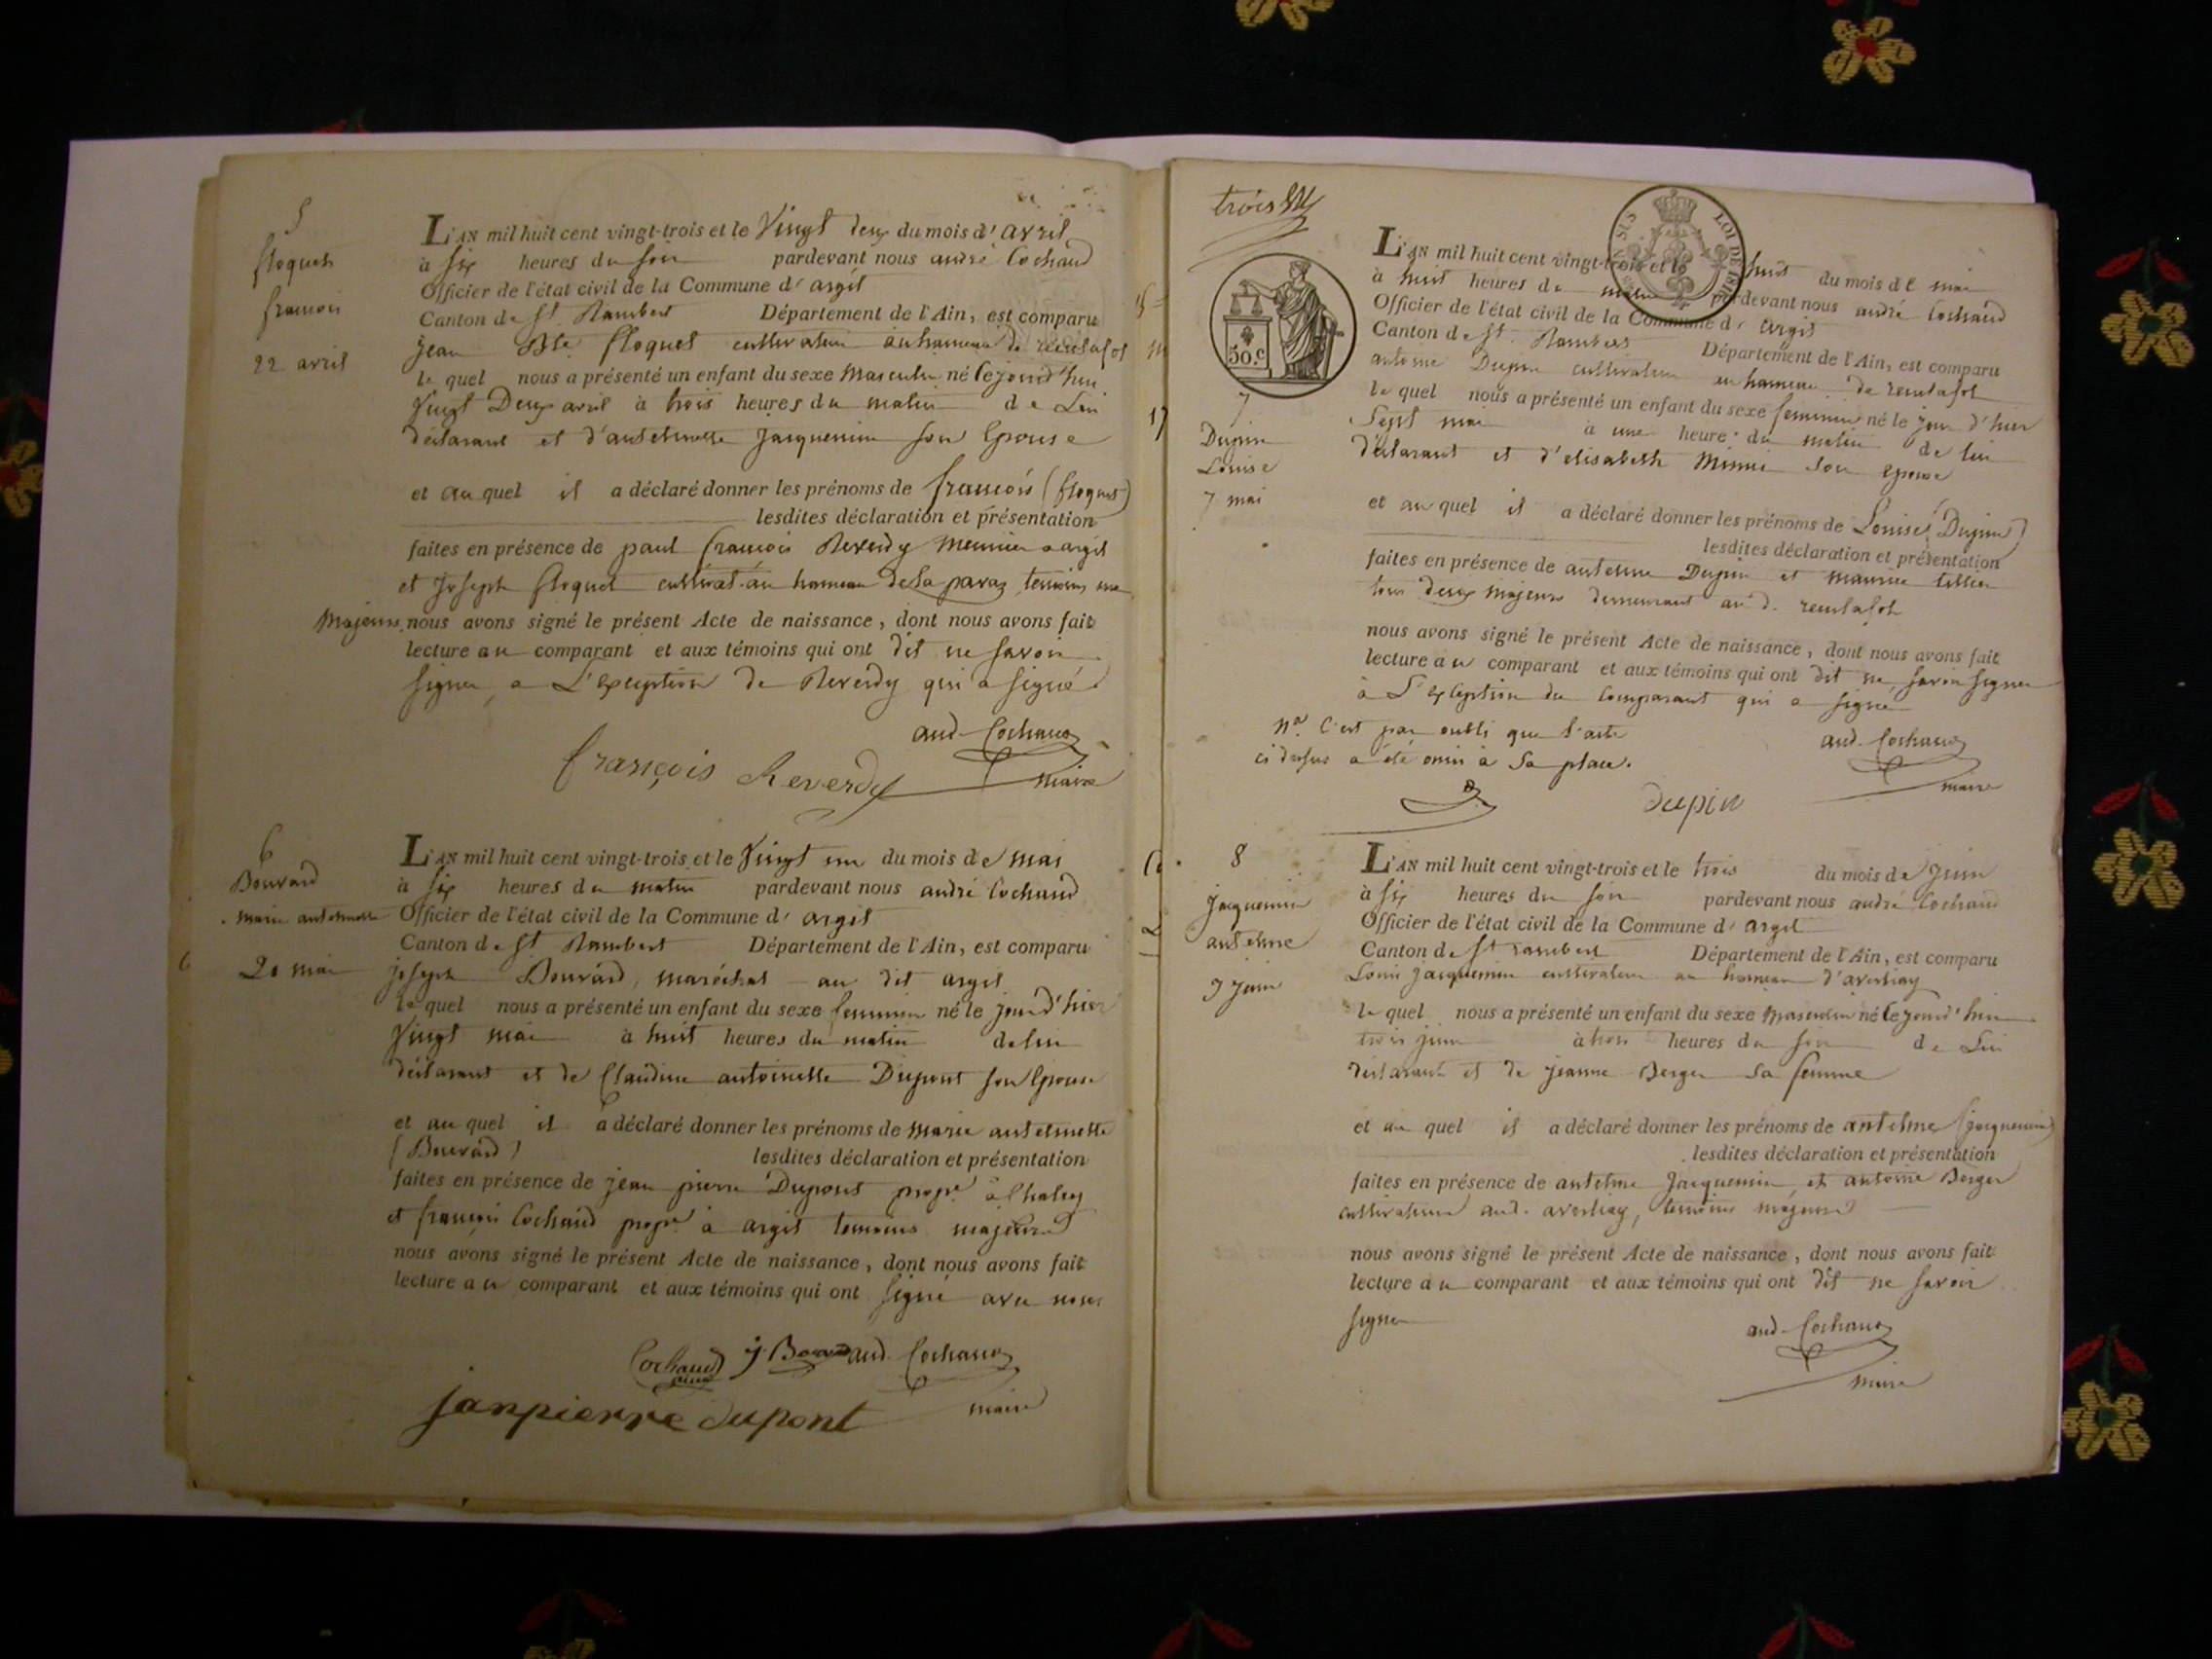 5
floquet
francois
22 avril
L'AN mil huit cent vingt-trois et le Vingt deux du mois d' avril
à six heures du soir pardevant nous andré Cochaud
Officier de l'état civil de la Commune d' argit
Canton de St. Rambert Département de l'Ain, est comparu
jean Bte. floquet cultivateur au hameau de
le quel nous a présenté un enfant du sexe masculin né le jourd'hui
Vingt Deux avril à trois heures du matin de Lui
déclarant et d'antelmette Jacquemin son Epouse
et au quel il a déclaré donner les prénoms de francois (floquet)
lesdites déclaration et présentation
faites en présence de paul francois Reverdy meunier a argit
et Joseph floquet cultivat. au hameau de la paraz, temoins
majeurs, nous avons signé le présent Acte de naissance, dont nous avons fait
lecture au comparant et aux témoins qui ont dit ne savoir
signer, a L'exception de Reverdy qui a signé.
and. Cochaud
maire
françois Reverdy
6
Bouvard
marie antelmette
20 mai
L'AN mil huit cent vingt-trois et le Vingt un du mois de mai
à six heures du matin pardevant nous andré Cochaud
Officier de l'état civil de la Commune d' argit
Canton de St. Rambert Département de l'Ain, est comparu
joseph Bouvard, maréchal au dit argit
le quel nous a présenté un enfant du sexe feminin né le jour d'hier
Vingt mai à huit heures du matin de lui
déclarant et de Claudine antoinette Dupont son Epouse
et au quel il a déclaré donner les prénoms de marie antelmette
(Bouvard) lesdites déclaration et présentation
faites en présence de jean pierre Dupont propre. à
et francois Cochaud propre. à argit temoins majeurs
nous avons signé le présent Acte de naissance, dont nous avons fait
lecture au comparant et aux témoins qui ont signé avec nous
Cochaud j. Bouvard and. Cochaud
maire
janpierre dupont
trois
50.c
LOI DE
7
Dupin
Louise
7 mai
L'AN mil huit cent vingt-trois et le huit du mois de mai
à huit heures du matin pardevant nous andré Cochaud
Officier de l'état civil de la Commune d' argit
Canton de St. Rambert Département de l'Ain, est comparu
antoine Dupin cultivateur au hameau de
le quel nous a présenté un enfant du sexe feminin né le jour d'hier
Sept mai à une heure du matin de lui
déclarant et d'elisabeth son epouse
et au quel il a déclaré donner les prénoms de Louise (Dupin)
lesdites déclaration et présentation
faites en présence de antelme Dupin et maurice
tous deux majeurs demeurant au d.
nous avons signé le présent Acte de naissance, dont nous avons fait
lecture au comparant et aux témoins qui ont dit ne savoir signer
à L'exception du comparant qui a signé
na. C'est par oubli que l'acte
ci dessus a été omis à sa place.
and. Cochaud
maire
dupin
8
jacquemin
antelme
3 juin
L'AN mil huit cent vingt-trois et le trois du mois de Juin
à six heures du soir pardevant nous andré Cochaud
Officier de l'état civil de la Commune d' argit
Canton de St rambert Département de l'Ain, est comparu
Louis jacquemin cultivateur au hameau d'averliaz
le quel nous a présenté un enfant du sexe masculin né le jourd'hui
trois juin à trois heures du soir de Lui
déclarant et de jeanne Berger sa femme
et au quel il a déclaré donner les prénoms de antelme (jacquemin)
lesdites déclaration et présentation
faites en présence de antelme Jacquemin, et antoine Berger
cultivateurs aud. averliaz, temoins majeurs
nous avons signé le présent Acte de naissance, dont nous avons fait
lecture au comparant et aux témoins qui ont dit ne savoir
signer
and. Cochaud
maire